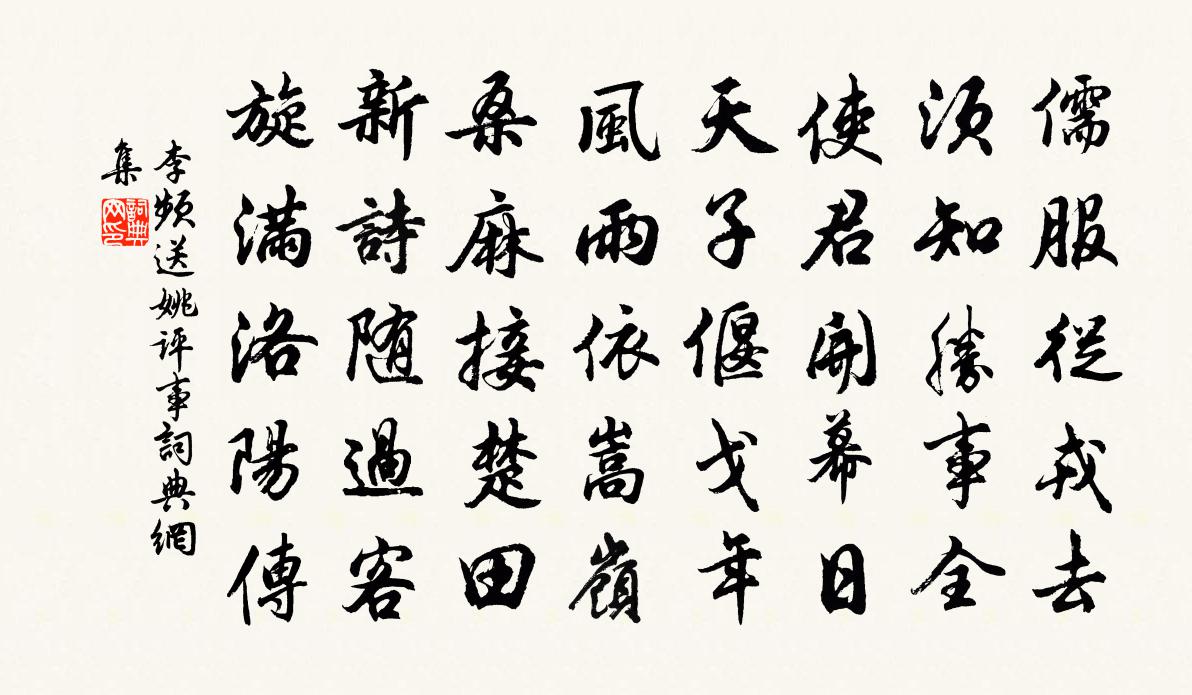 儒服從戎去
須知勝事全
使君開幕日
天子偃戈年
風雨依嵩嶺
桑麻接楚田
新詩隨過客
旋滿洛陽傳
李頻送姚評事詞典網
集
詞典
网印